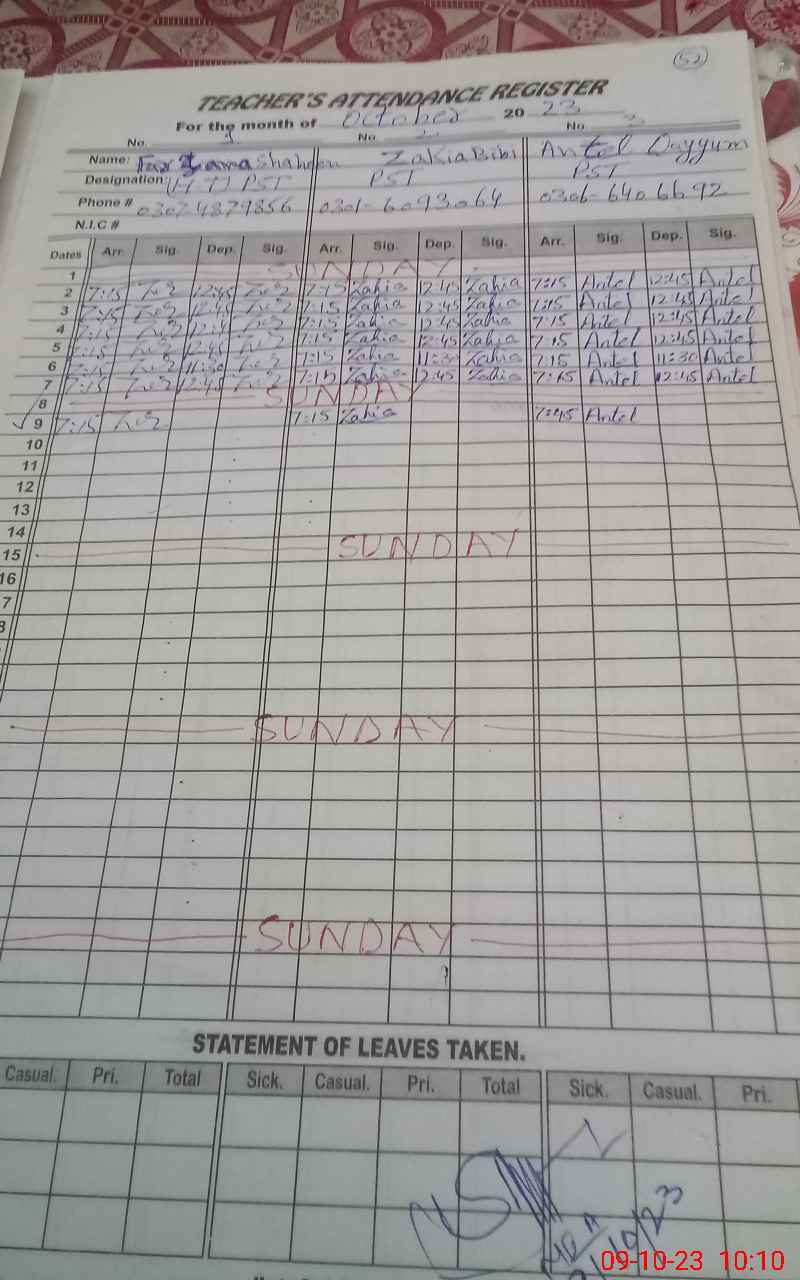 52
TEACHER'S ATTENDANCE REGISTER
For the month of October 2023
No. 1 No. 2 No. 3
Name: Shaheen Zakia Bibi Antel Qayyum
Designation: PST PST PST
Phone # 03024879856 0301-6093064 0306-6406692
N.I.C #
Dates Arr. Sig. Dep. Sig. Arr. Sig. Dep. Sig. Arr. Sig. Dep. Sig.
1 SUNDAY
2 7:15 12:45 7:15 Zakia 12:45 Zakia 7:15 Antel 12:45 Antel
3 7:15 12:45 7:15 Zakia 12:45 Zakia 7:15 Antel 12:45 Antel
4 7:15 12:45 7:15 Zakia 12:45 Zakia 7:15 Antel 12:45 Antel
5 7:15 12:45 7:15 Zakia 12:45 Zakia 7:15 Antel 12:45 Antel
6 7:15 11:30 7:15 Zakia 11:30 Zakia 7:15 Antel 11:30 Antel
7 7:15 12:45 7:15 Zakia 12:45 Zakia 7:15 Antel 12:45 Antel
8 SUNDAY
9 7:15 7:15 Zakia Antel
10
11
12
13
14
15 SUNDAY
16
7
8
SUNDAY
SUNDAY
STATEMENT OF LEAVES TAKEN.
Casual. Pri. Total Sick. Casual. Pri. Total Sick. Casual. Pri.
09-10-23 10:10